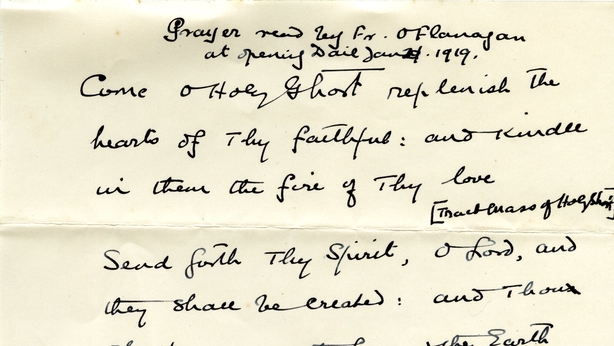 Prayer read by Fr. O Flanagan
at opening Dail Jan 21. 1919.
Come O Holy Ghost replenish the
hearts of Thy faithful: and kindle
in them the fire of Thy love
[Tract Mass of Holy Ghost]
Send forth Thy Spirit, O Lord, and
they shall be created: and Thou
the Earth